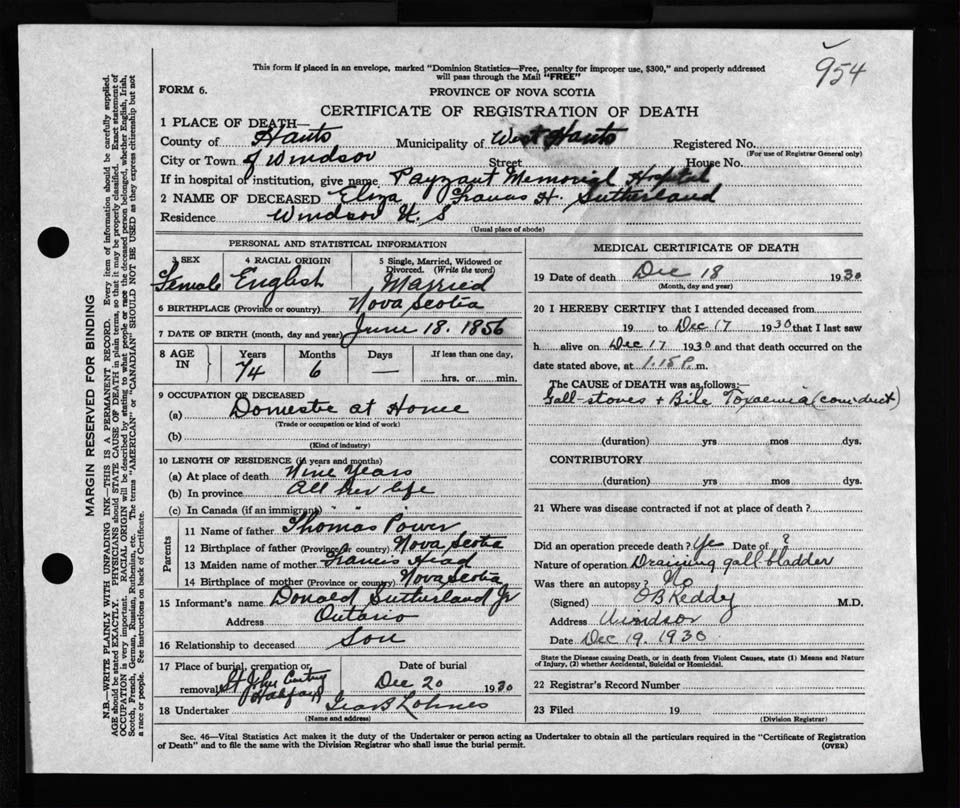 954
This form if placed in an envelope, marked "Dominion Statistics—Free, penalty for improper use, $300," and properly addressed
will pass through the Mail "FREE"
FORM 6.
PROVINCE OF NOVA SCOTIA
CERTIFICATE OF REGISTRATION OF DEATH
1 PLACE OF DEATH—
County of Hants Municipality of West Hants Registered No.
(For use of Registrar General only)
City or Town of Windsor Street House No.
If in hospital or institution, give name Payzant Memorial Hospital
2 NAME OF DECEASED Eliza Francis H. Sutherland
Residence Windsor N. S
(Usual place of abode)
PERSONAL AND STATISTICAL INFORMATION
3 SEX 4 RACIAL ORIGIN 5 Single, Married, Widowed or
Divorced. (Write the word)
Female English Married
6 BIRTHPLACE (Province or country) Nova Scotia
7 DATE OF BIRTH (month, day and year) June 18. 1856
8 AGE IN Years Months Days If less than one day,
74 6 — hrs. or min.
9 OCCUPATION OF DECEASED
(a) Domestic at Home
(Trade or occupation or kind of work)
(b)
(Kind of industry)
10 LENGTH OF RESIDENCE (in years and months)
(a) At place of death Nine Years
(b) In province All her life
(c) In Canada (if an immigrant) " " "
Parents
11 Name of father Thomas Power
12 Birthplace of father (Province or country) Nova Scotia
13 Maiden name of mother Francis Head
14 Birthplace of mother (Province or country) Nova Scotia
15 Informant's name Donald Sutherland Jr
Address Ontario
16 Relationship to deceased Son
17 Place of burial, cremation or Date of burial
removal St John Halifax Dec 20 1930
18 Undertaker Ira B Lohnes
(Name and address)
MEDICAL CERTIFICATE OF DEATH
19 Date of death Dec 18 1930
(Month, day and year)
20 I HEREBY CERTIFY that I attended deceased from
19 to Dec 17 1930 that I last saw
h alive on Dec 17 1930 and that death occurred on the
date stated above, at 1.15 P. m.
The CAUSE OF DEATH was as follows:—
Gall-stones + Bile Toxaemia (com. duct)
(duration) yrs mos dys.
CONTRIBUTORY
(duration) yrs mos dys.
21 Where was disease contracted if not at place of death?
Did an operation precede death? Yes Date of ?
Nature of operation Draining gall bladder
Was there an autopsy? No
(Signed) O B Keddy M.D.
Address Windsor
Date Dec 19. 1930
State the Disease causing Death, or in death from Violent Causes, state (1) Means and Nature
of Injury, (2) whether Accidental, Suicidal or Homicidal.
22 Registrar's Record Number
23 Filed 19
(Division Registrar)
Sec. 46—Vital Statistics Act makes it the duty of the Undertaker or person acting as Undertaker to obtain all the particulars required in the "Certificate of Registration
of Death" and to file the same with the Division Registrar who shall issue the burial permit.
(OVER)
MARGIN RESERVED FOR BINDING
N.B.—WRITE PLAINLY WITH UNFADING INK—THIS IS A PERMANENT RECORD. Every item of information should be carefully supplied.
AGE should be stated EXACTLY. PHYSICIANS should STATE CAUSE OF DEATH in plain terms, so that it may be properly classified. Exact statement of
OCCUPATION is very important. RACIAL ORIGIN will be described by stating to what people or race the deceased person belonged, whether English, Irish,
Scotch, French, German, Russian, Ruthenian, etc. The terms "AMERICAN" or "CANADIAN" SHOULD NOT BE USED as they express citizenship but not
a race or people. See instructions on back of Certificate.